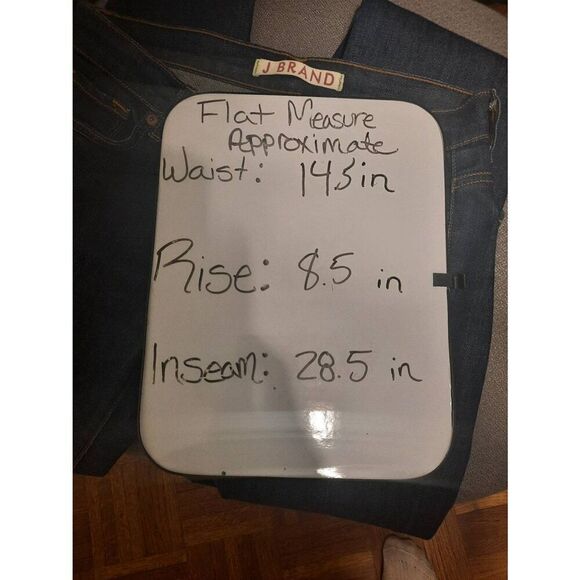 J BRAND
Flat Measure
Approximate
Waist: 14.5in
Rise: 8.5 in
Inseam: 28.5 in